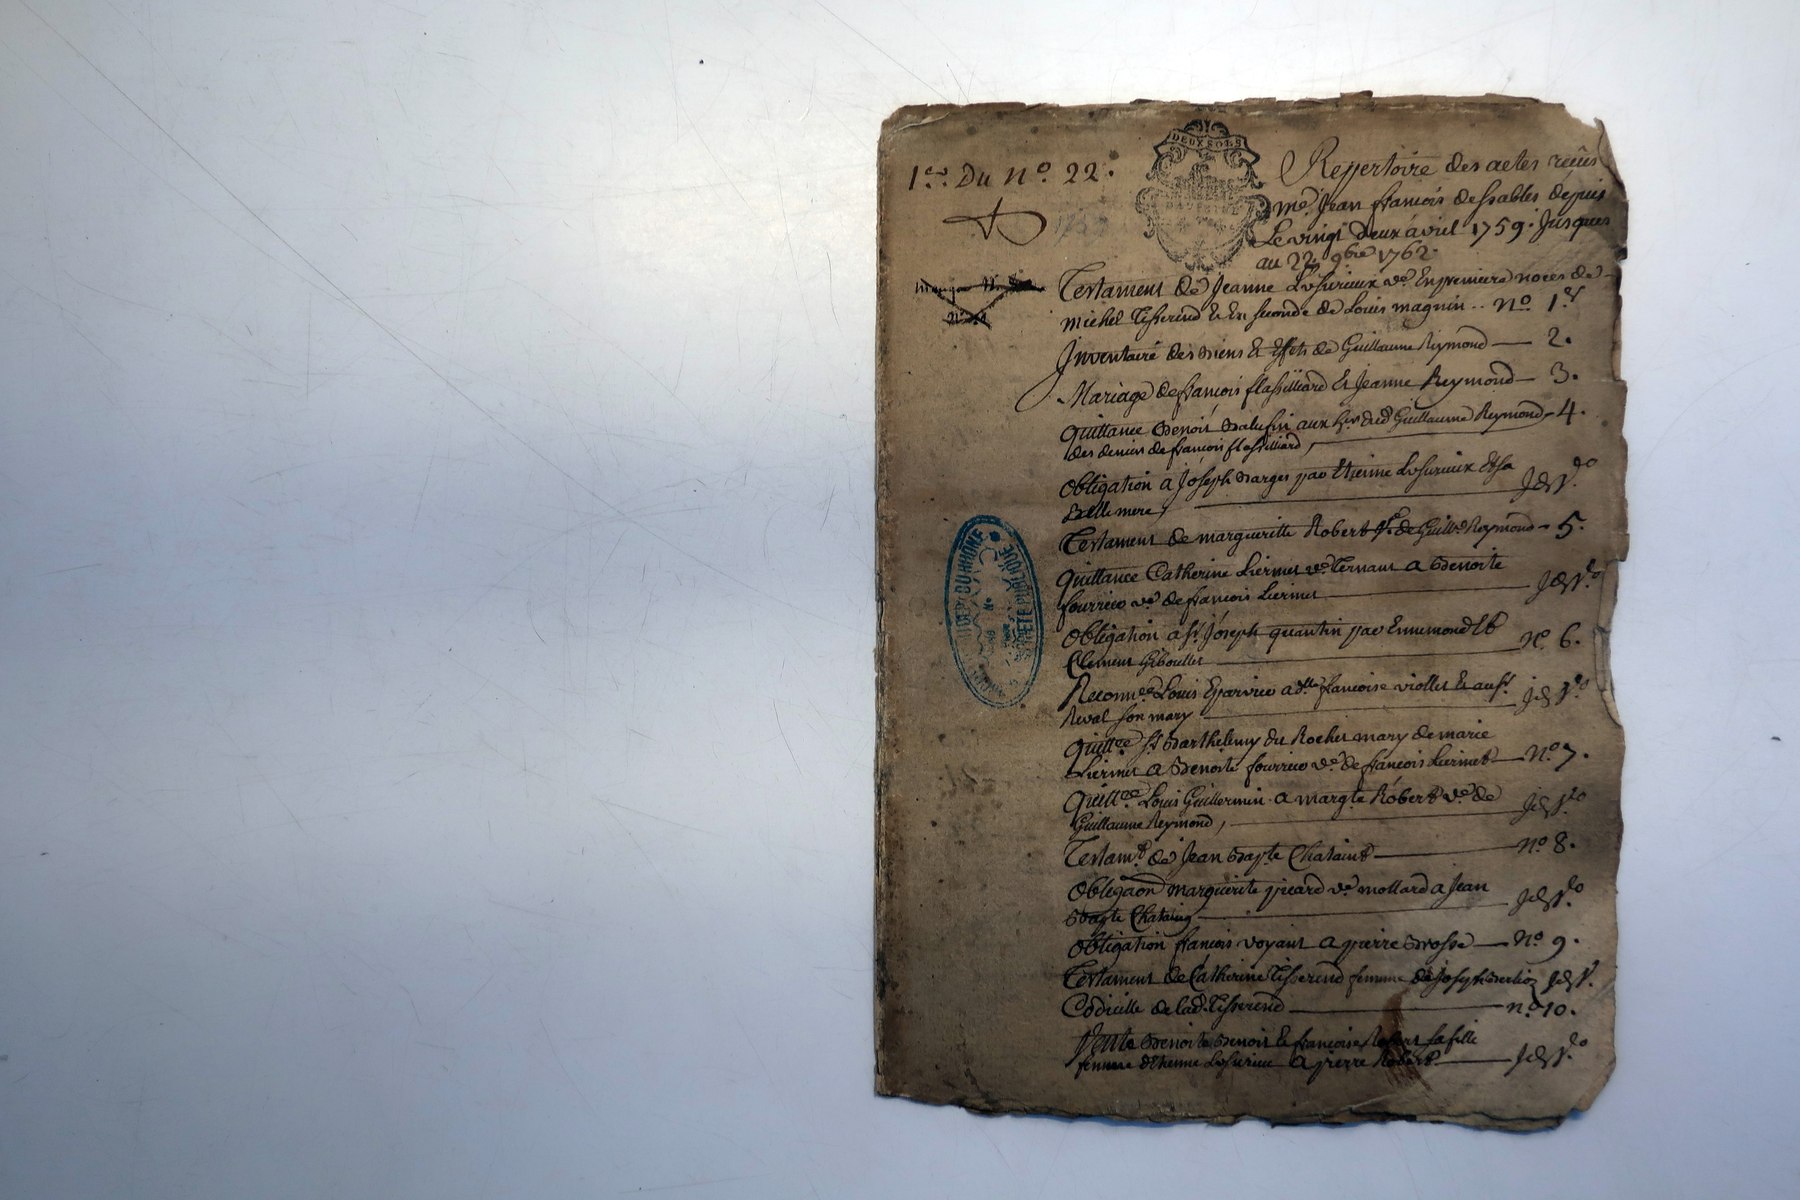 1er. Du No. 22.
DEUX SOLS
Repertoire des actes reçûs
me. Jean françois dessables depuis
Le vingt deux avril 1759. Jusques
au 22 9bre 1762.
Testament de Jeanne ve. En premiere noces de
michel Tisserend & En seconde de Louis magnin .. no. 1er
Inventaire des Biens & Effets de Guillaume Reymond — 2.
Mariage de françois flassilliard & Jeanne Reymond — 3.
Quittance Benoit aux hrs dud Guillaume Reymond — 4.
des deniers de françois flassilliard,
Obligation a Joseph Barges par Etienne Et sa
Belle mere,
Testament de margueritte Robert fe. de Guille. Reymond — 5.
Quittance Catherine Liermet ve. Ternant a Benoite
fourrier ve. de françois Liermet
Obligation a sr. Joseph quantin par Ennemond Et
Clement Giboullet no. 6.
Louis a dlle françoise viollet &
Reval son mary
Quittce sr. Barthelemy du Rochet mary de marie
Liermet a Benoite fourrier ve. de françois Liermet — No. 7.
Quittce Louis Guillermin a margte Robert ve. de
Guillaume Reymond,
Testamt de Jean Bapte Chataint — no. 8.
Obligaon marguerite picard ve. mollard a Jean
Bapte Chataing
Obligation françois voyant a pierre Brosse — No. 9.
Testament de Catherine Tisserend femme de Joseph Berlioz
Codicille de lad. Tisserend — no. 10.
Vente Benoite Benoit & françoise Robert sa fille
femme d'Etienne a pierre Robert